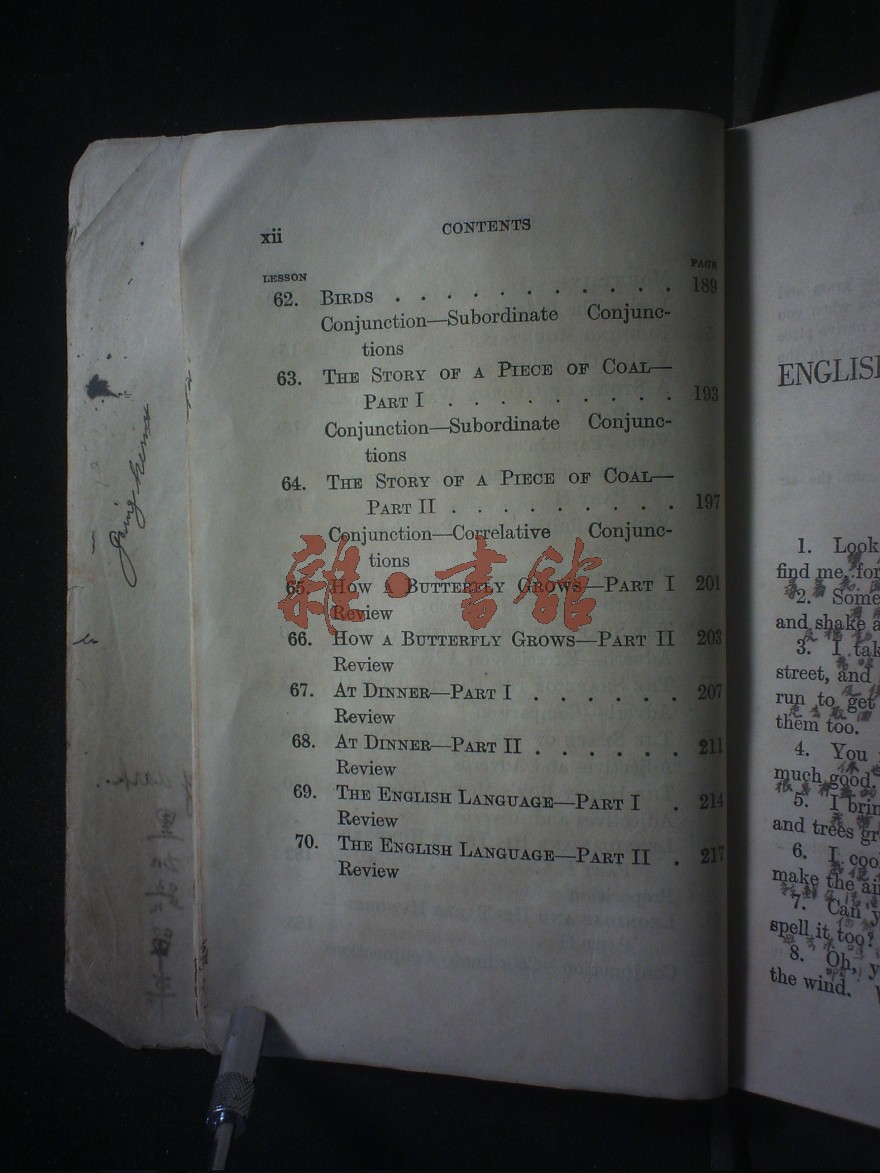 xii
CONTENTS
LESSON
PAGE
62. BIRDS . . . . . . . . . . . . 189
Conjunction—Subordinate Conjunc-
tions
63. THE STORY OF A PIECE OF COAL—
PART I . . . . . . . . . 193
Conjunction—Subordinate Conjunc-
tions
64. THE STORY OF A PIECE OF COAL—
PART II . . . . . . . . . 197
Conjunction—Correlative Conjunc-
tions
65. HOW A BUTTERFLY GROWS—PART I 201
Review
66. HOW A BUTTERFLY GROWS—PART II 203
Review
67. AT DINNER—PART I . . . . . . 207
Review
68. AT DINNER—PART II . . . . . . 211
Review
69. THE ENGLISH LANGUAGE—PART I . 214
Review
70. THE ENGLISH LANGUAGE—PART II . 217
Review
雜·書館
ENGLISH
1. Look
find me, for
2. Some
and shake a
3. I tak
street, and
run to get
them too.
4. You
much good.
5. I brin
and trees gr
6. I coo
make the air
7. Can y
spell it too?
8. Oh, y
the wind.